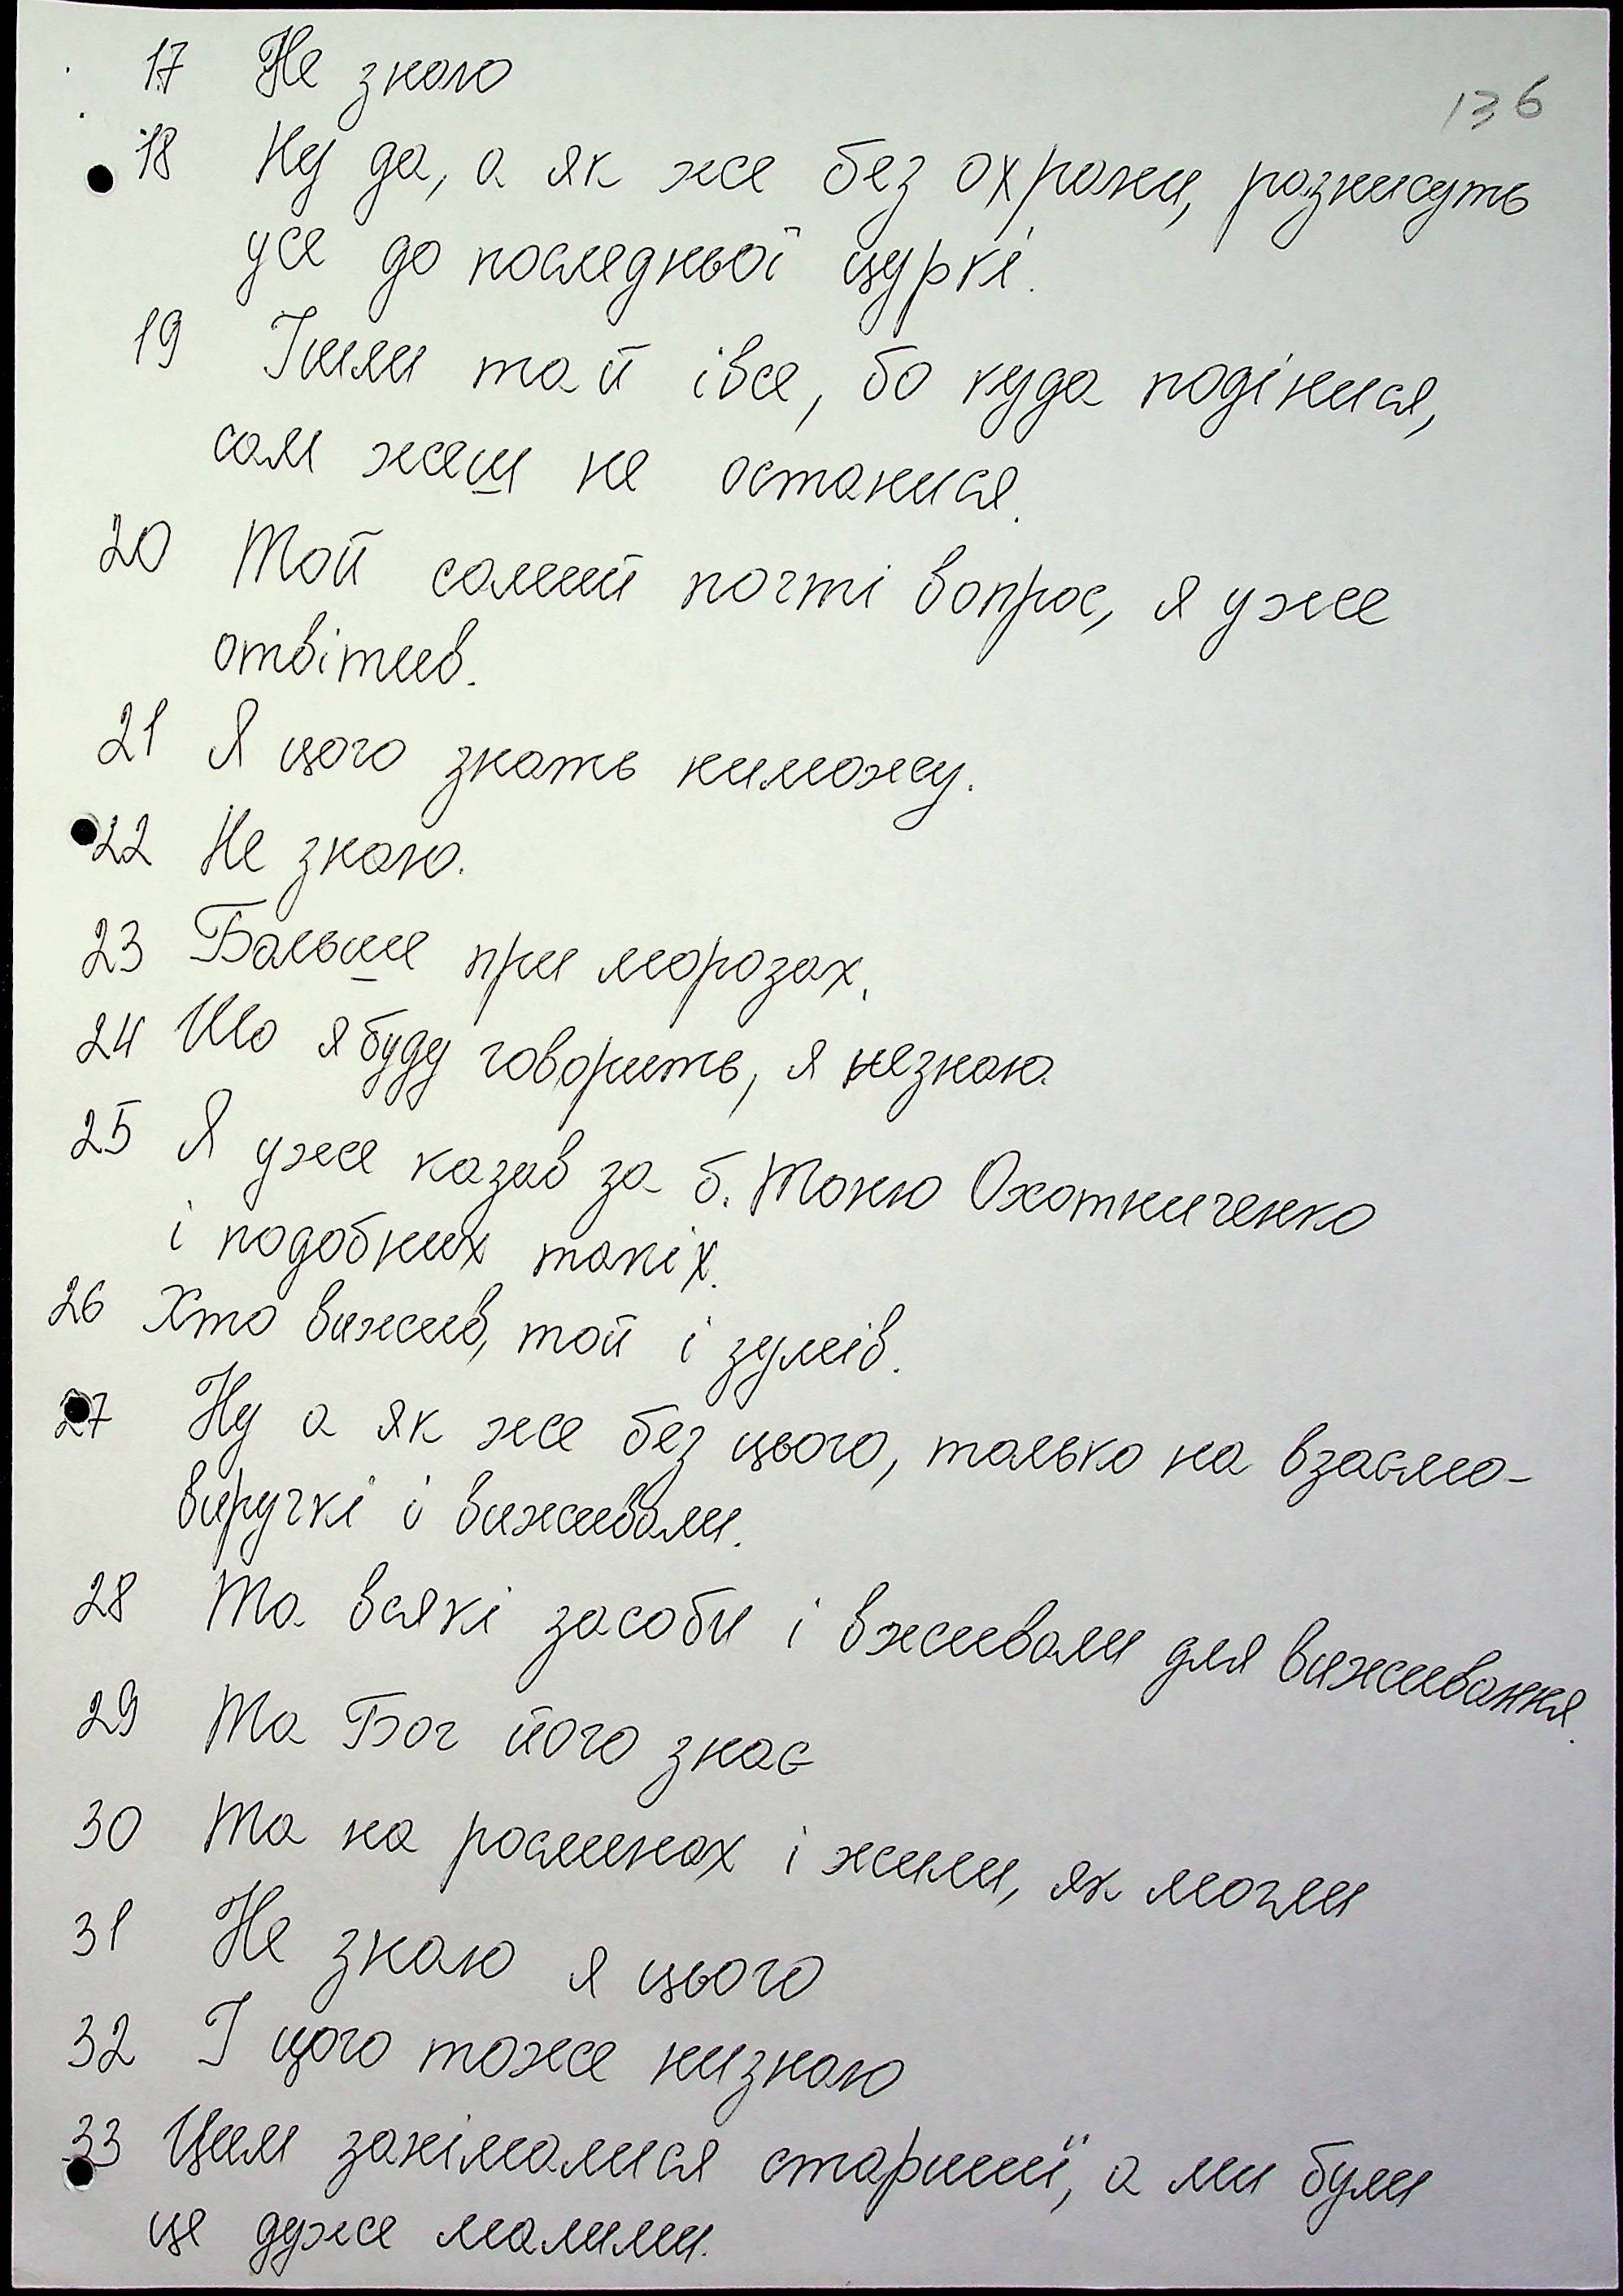 136
17 Не знаю
18 Ну да, а як же без охрани, рознисуть
усе до последньої цуркі.
19 Їшли та й івсе, бо куда подінися,
сам жеш не останися.
20 Той самий почті вопрос, я уже
отвітив.
21 Я цого знать ниможу.
22 Не знаю.
23 Больше при морозах.
24 Шо я буду говорить, я незнаю.
25 Я уже казав за б. Тоню Охотниченко
і подобних такіх.
26 Хто вижив, той і зумів.
27 Ну а як же без цього, только на взаємо-
виручкі і виживали.
28 Та всякі засоби і вживали для виживання.
29 Та Бог його знає
30 Та на рослинах і жили, як могли
31 Не знаю я цього
32 І цого тоже низнаю
33 Цим занімалися старшиї, а ми були
ще дуже малими.